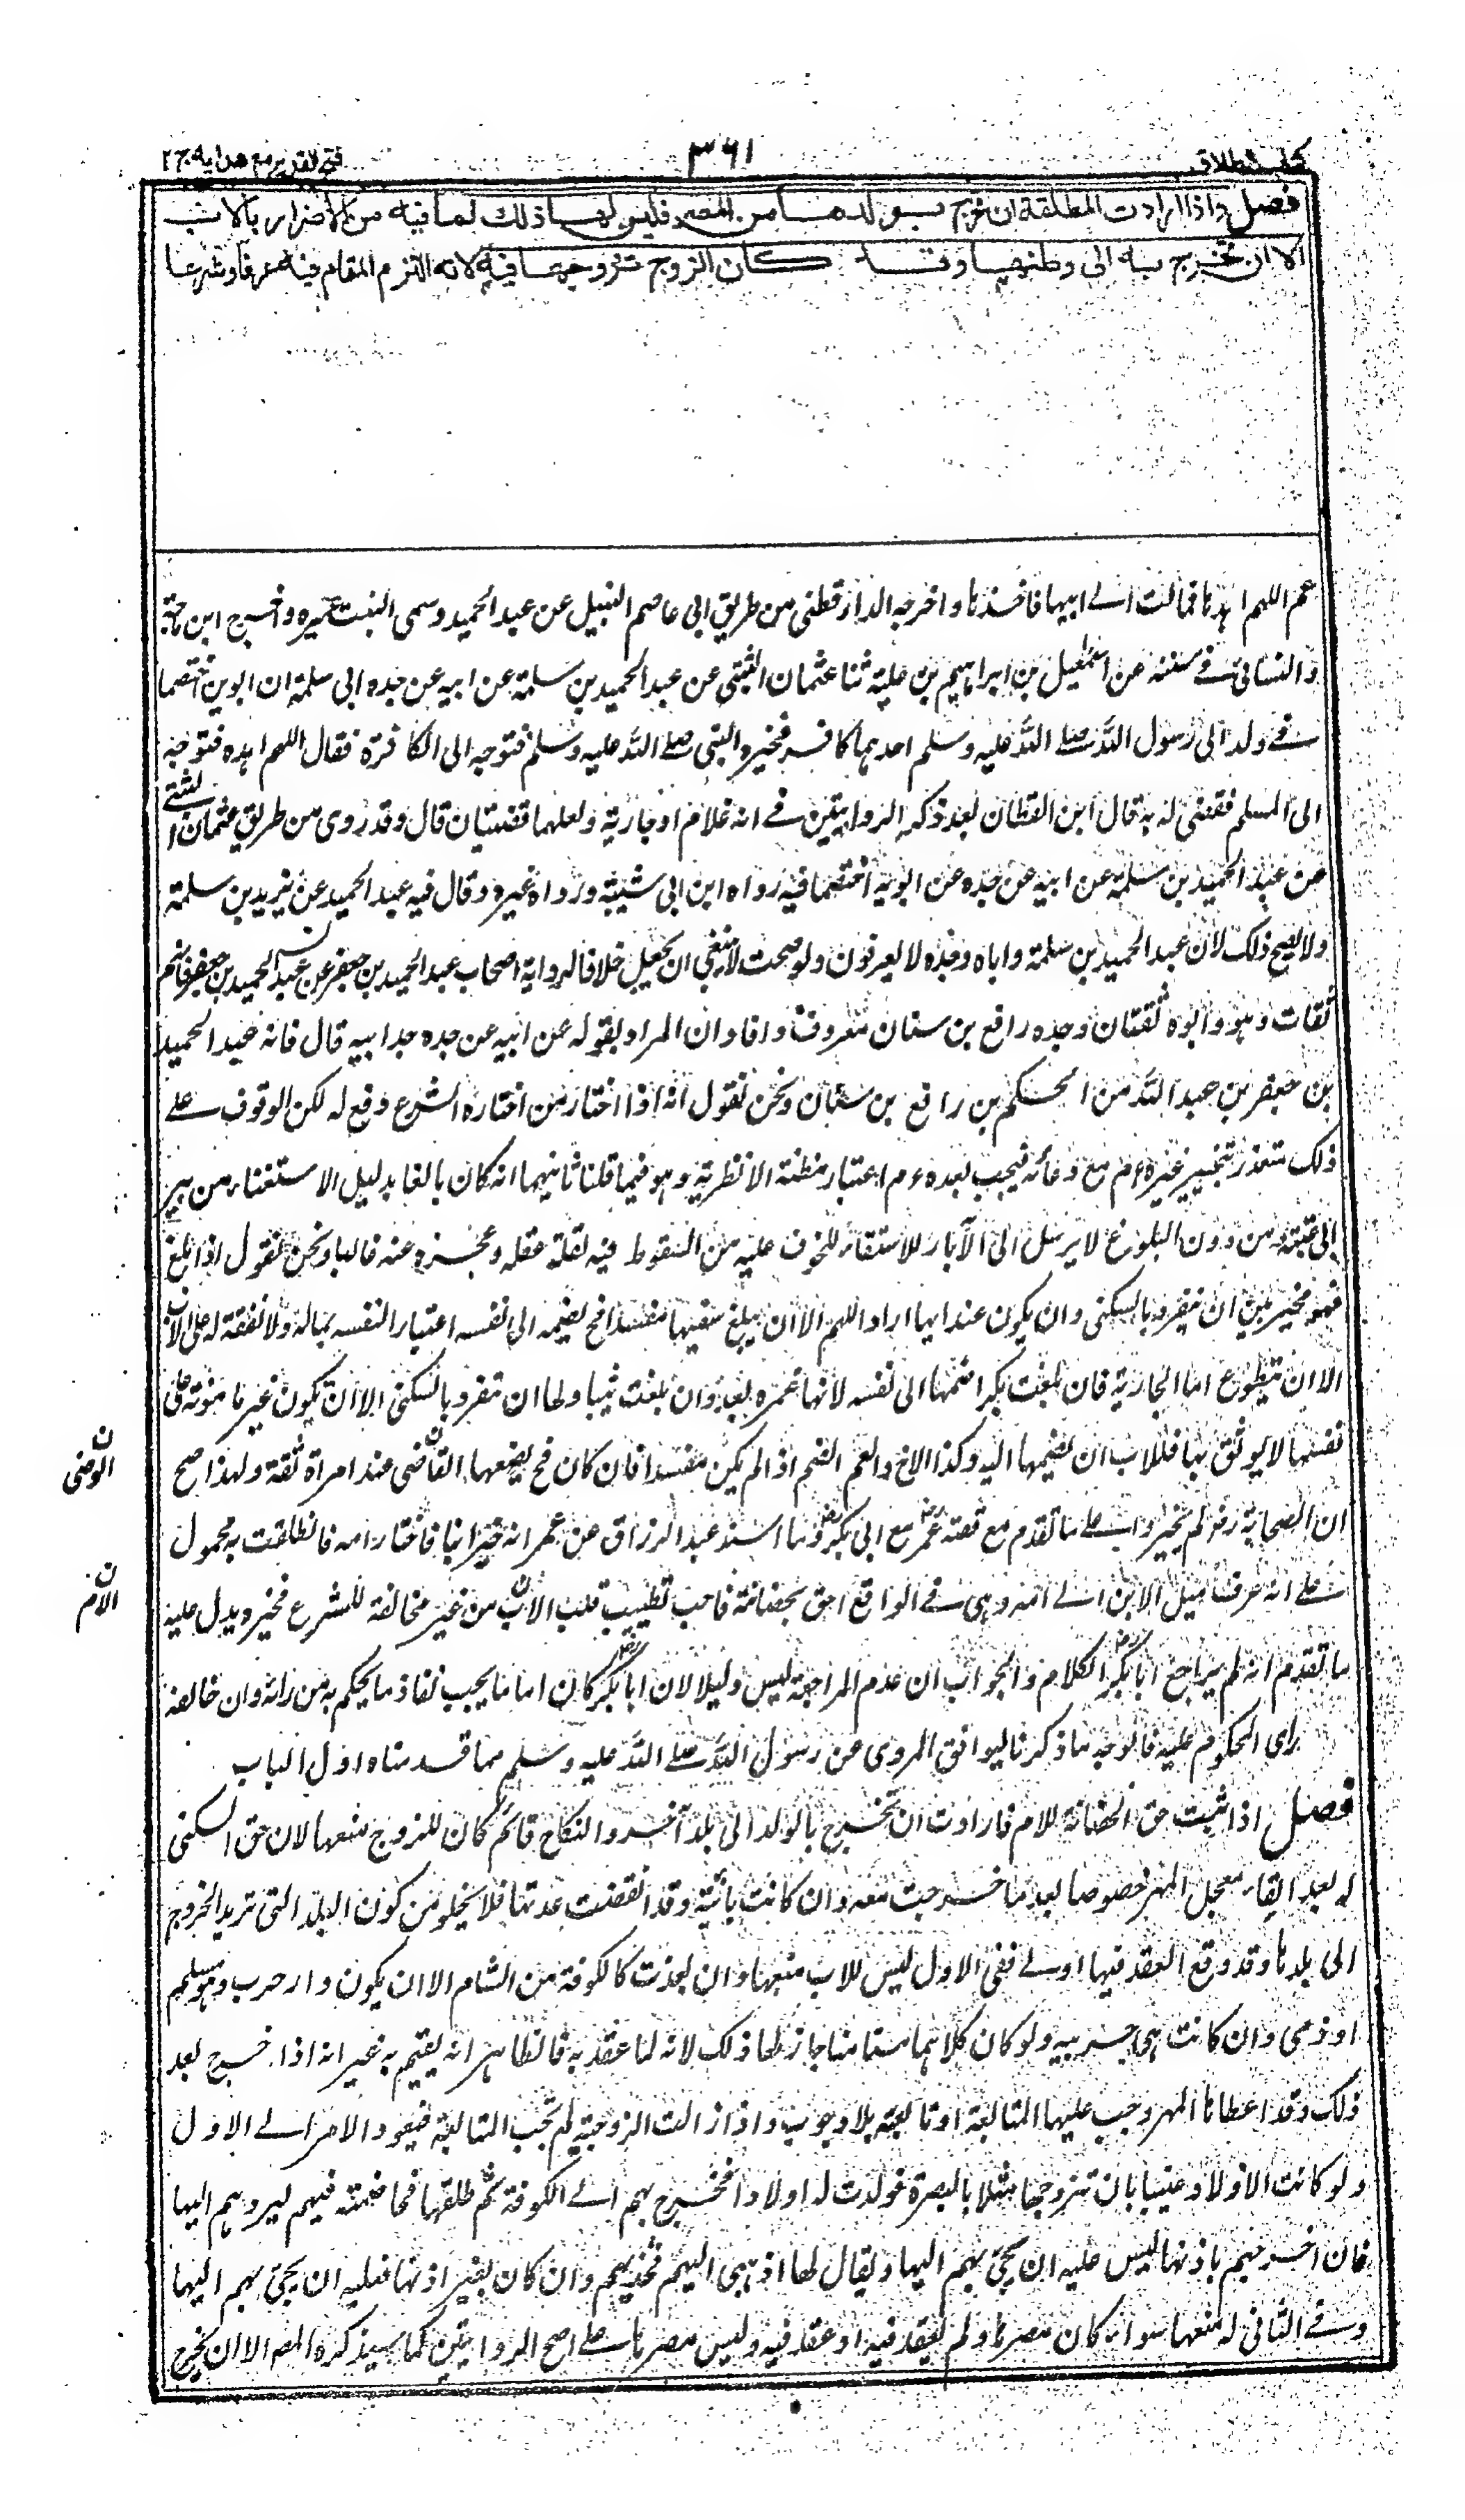 كتاب الطلاق
٣٦١
فتح القدير مع هدايه ج ٢
فصل واذا ارادت المطلقة ان تخرج بولدها من المصر فليس لها ذلك لما فيه من الاضرار بالاب
الا ان تخرج به الى وطنها وقد كان الزوج تزوجها فيه لانه التزم المقام فيه عرفا وشرعا
عم اللهم اهدها فمالت الے ابيها فاخذها واخرجه الدارقطنى من طريق ابى عاصم النبيل عن عبد الحميد وسمى البنت عميره واخرج ابن ماجة
والنسائى فے سننه عن اسمعيل بن ابراهيم بن علية ثنا عثمان البتى عن عبد الحميد بن سلمة عن ابيه عن جده ابى سلمة ان ابوين اختصما
فے ولد الى رسول الله صلے الله عليه وسلم احدهما كافر فخيره النبى صلے الله عليه وسلم فتوجه الى الكافرة فقال اللهم اهده فتوجه
الى المسلم فقضى له به قال ابن القطان بعد ذكر الروايتين فے انه غلام او جارية ولعلهما قضيتان قال وقد روى من طريق عثمان البتے
عن عبد الحميد بن سلمة عن ابيه عن جده عن ابويه اختصما فيه رواه ابن ابى شيبة ورواه غيره وقال فيه عبد الحميد عن يزيد بن سلمة
ولا يصح ذلك لان عبد الحميد بن سلمة واباه وجده لا يعرفون ولو صحت لا ينبغي ان يجعل خلافا لرواية اصحاب عبد الحميد بن جعفر عن عبد الحميد بن جعفر فانهم
ثقات وهو وابوه ثقتان وجده رافع بن سنان معروف وافاد ان المراد بقوله عن ابيه عن جده جد ابيه قال فانه عبد الحميد
بن جعفر بن عبد الله من الحكم بن رافع بن سنان ونحن نقول انه اذا اختار من اختاره الشرع دفع له لكن الوقوف علے
ذلك متعذر بتخيير غيره ءم مع دعائه فيجب بعده ءم اعتبار مظنة الانظرية وهو فيما قلنا ثانيهما انه كان بالغا بدليل الاستغناء من بير
ابى عتبة ومن دون البلوغ لا يرسل الى الآبار للاستقاء للخوف عليه من السقوط فيه لقلة عقله وعجزه عنه غالبا ونحن نقول اذا بلغ
فهو مخير بين ان ينفرد بالسكنى وان يكون عند ايهما اراد اللهم الا ان يبلغ سفيها مفسدا فح يضمه الى نفسه اعتبارا لنفسه بماله ولا نفقة له على الاب
الا ان يتطوع اما الجارية فان بلغت بكرا ضمها الى نفسه لانها غمره بعد وان بلغت ثيبا ولها ان تنفرد بالسكنى الا ان تكون غير مامونة على
نفسها لا يوثق بها فللاب ان يضمها اليه وكذا الاخ والعم الضم اذا لم يكن مفسدا فان كان فح يضعها القاضى عند امراة ثقة ولهذا صح
ن
الوضى
ان الصحابة رض لم يخيروا بے علے ما تقدم مع قصة عمر مع ابى بكر وما اسند عبد الرزاق عن عمر انه خير ابنا فاختار امه فانطلقت به محمول
علے انه عرف ميل الابن الے امه وهى فے الواقع احق بحضانته فاحب تطييب قلب الاب من غير مخالفة للشرع فخيره ويدل عليه
ن
الام
ما تقدم انه لم يراجع ابا بكر الكلام والجواب ان عدم المراجعة ليس دليلا لان ابا بكر كان اماما يجب نفاذ ما يحكم به من رائه وان خالفه
راى المحكوم عليه فالوجه ما ذكرنا ليوافق المروى عن رسول الله صلے الله عليه وسلم مما قدمناه اول الباب
فصل اذا ثبت حق الحضانة للام فارادت ان تخرج بالولد الى بلد آخر والنكاح قائم كان للزوج منعها لان حق السكنى
له بعد ايفاء معجل المهر خصوصا بعد ما خرجت معه وان كانت بائنة وقد انقضت عدتها فلا يخلو من كون البلد التى تريد الخروج
الى بلدها وقد وقع العقد فيها اولے ففى الاول ليس للاب منعها وان بعدت كالكوفة من الشام الا ان يكون دار حرب وهو مسلم
او ذمى وان كانت هى حربيه ولو كان كلاهما مستامنا جاز لها ذلك لانه لما عقد به فالظاهر انه يقيم به غير انه اذا خرج بعد
ذلك وقد اعطاها المهر وجب عليها المتابعة او تابعته بلا وجوب واذا زالت الزوجية لم تجب المتابعة فيعود الامر الے الاول
ولو كانت الاولاد عينيا بان تزوجها مثلا بالبصرة فولدت له اولادا فخرج بهم الے الكوفة ثم طلقها فخاصمته فيهم ليردهم اليها
فان اخرجهم باذنها ليس عليه ان يجئ بهم اليها ويقال لها اذهبى اليهم فخذيهم وان كان بغير اذنها فعليه ان يجئ بهم اليها
وفے الثانى له منعها سواء كان مصرها ولم يعقد فيه او عقد فيه وليس مصرها علے اصح الروايتين كما سيذكره المصـ الا ان يخرج